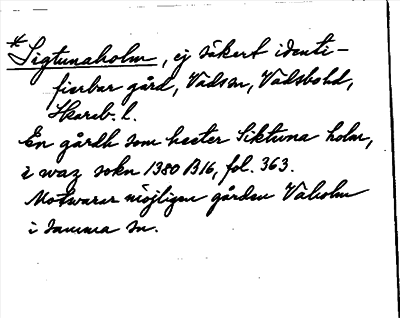 *Sigtunaholm, ej säkert identi-
fierbar gård, Vads sn, Vadsbohd,
Skarab. l.
En gårdh som heeter Siktuna holm,
i waz sokn 1380 B16, fol. 363.
Motsvarar möjligen gården Vaholm
i samma sn.